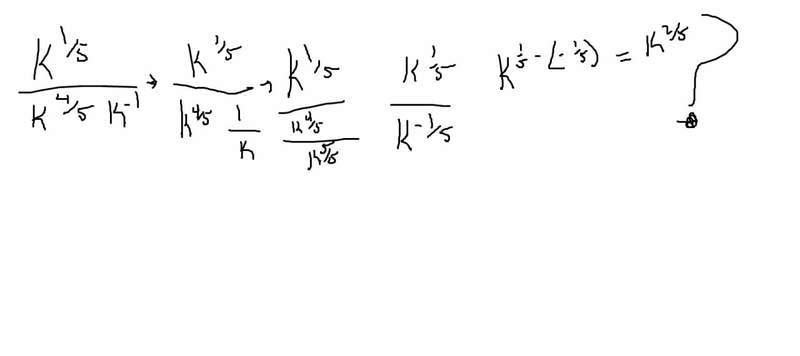 K^{1/5} / (K^{4/5} K^{-1}) → K^{1/5} / (K^{4/5} 1/K) → K^{1/5} / (K^{4/5} / K^{5/5})   K^{1/5} / K^{-1/5}   K^{1/5 - (-1/5)} = K^{2/5} ?